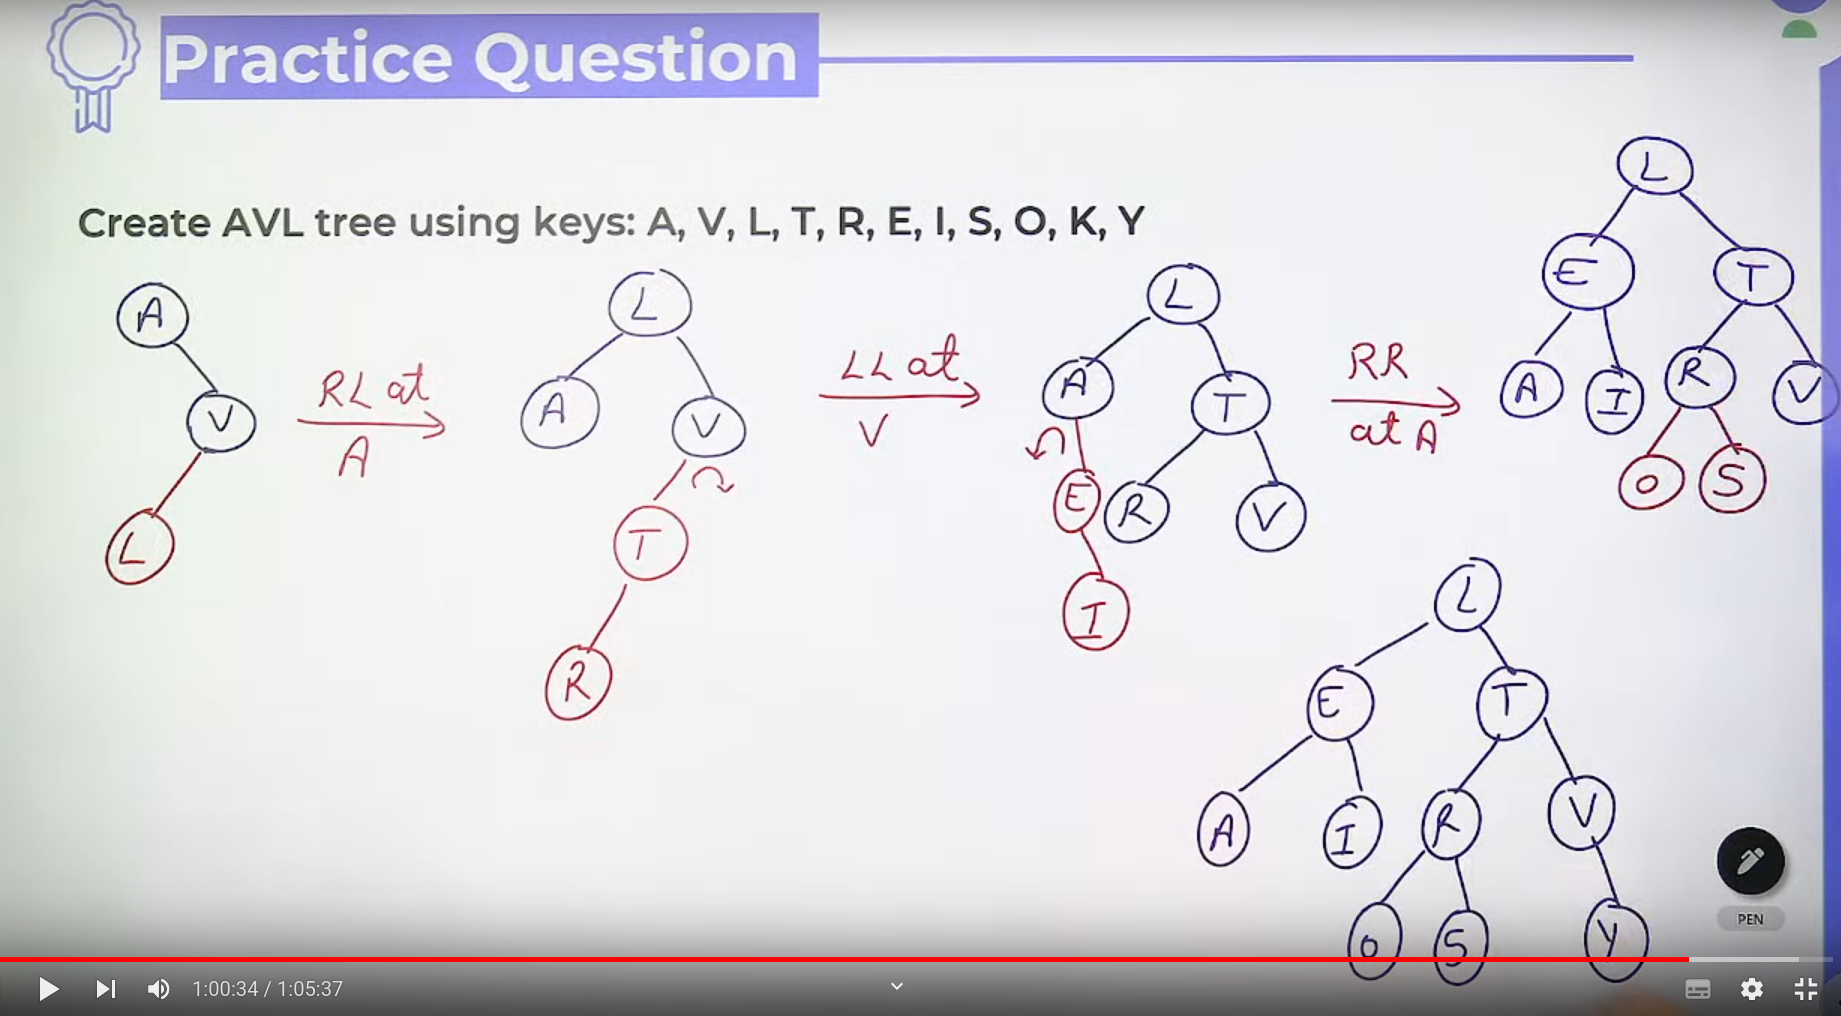 Practice Question
Create AVL tree using keys: A, V, L, T, R, E, I, S, O, K, Y
A
V
L
RL at
A
L
A
V
T
R
LL at
V
L
A
T
E
R
V
I
RR
at A
L
E
T
A
I
R
V
O
S
L
E
T
A
I
R
V
O
S
Y
PEN
1:00:34 / 1:05:37